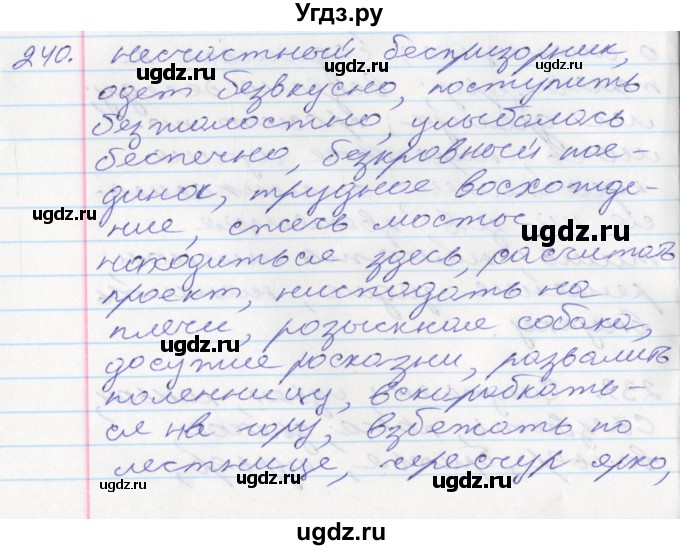 Угдз.ру
240. несчастный беспризорник,
одет безвкусно, поступить
безжалостно, улыбалась
беспечно, бескровный пое-
динок, трудное восхожде-
ние, сжечь мосты,
находиться здесь, расчитать
проект, ниспадать на
плечи, розыскная собака,
досужие росказни, развалить
поленницу, вскарабкать-
ся на гору, взбежать по
лестнице, чересчур ярко,
ugdz.ru ugdz.ru
ugdz.ru ugdz.ru
ugdz.ru ugdz.ru
ugdz.ru ugdz.ru
ugdz.ru ugdz.ru
ugdz.ru ugdz.ru ugdz.ru
ugdz.ru